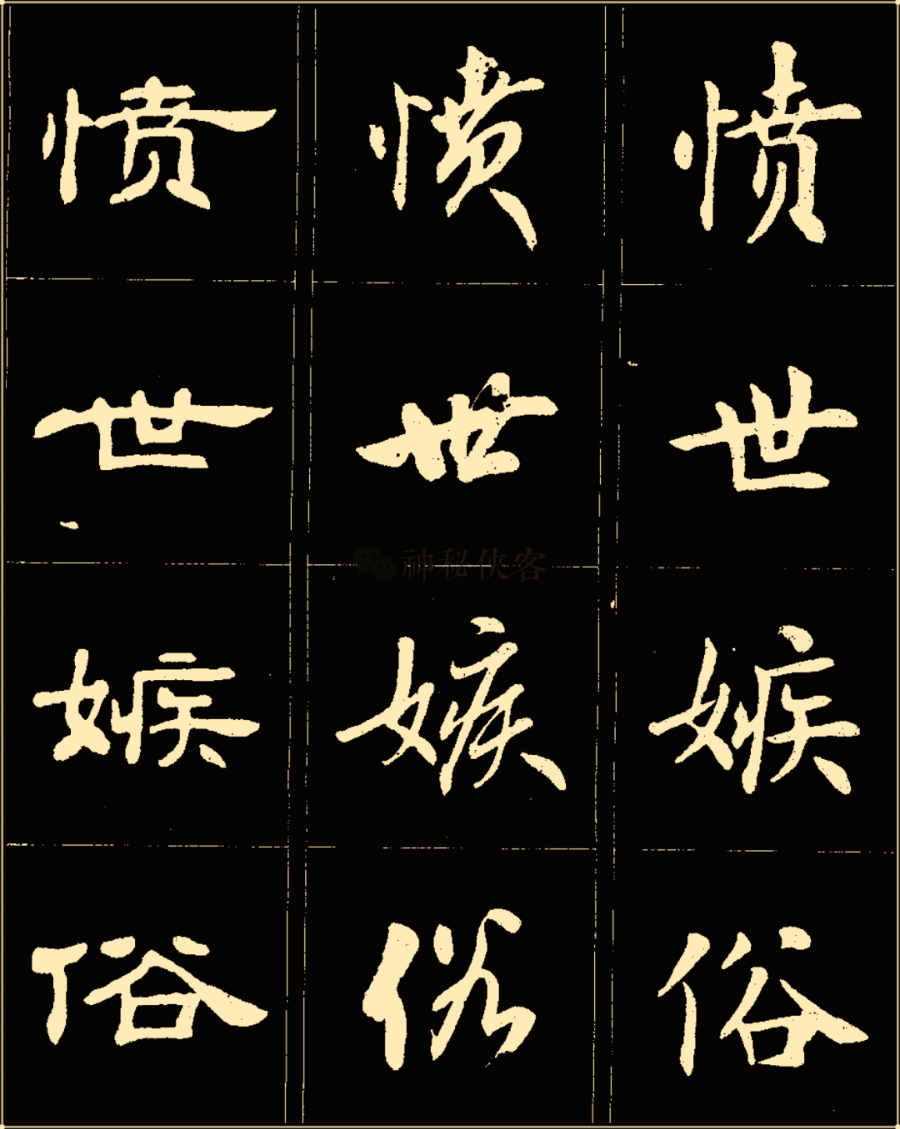 愤世嫉俗
愤世嫉俗
愤世嫉俗
神秘侠客